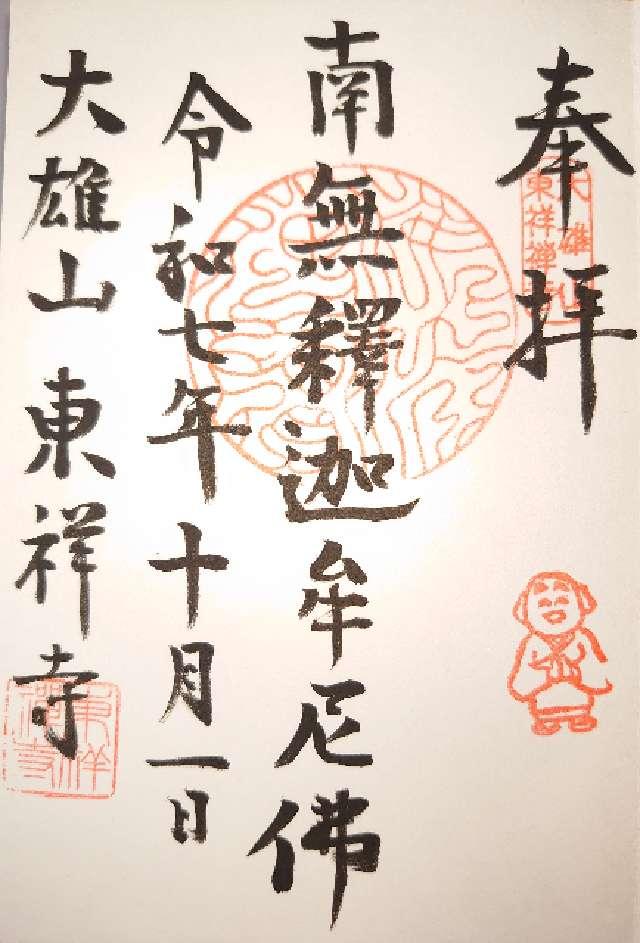 奉拝
大雄山
東祥禅寺
南無釋迦牟尼佛
令和七年十月一日
大雄山 東祥寺
東祥
禅寺